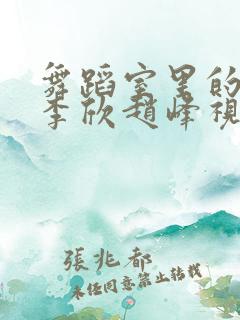 舞蹈室里的
李欣趙峰視
張兆都
未经同意禁止转载